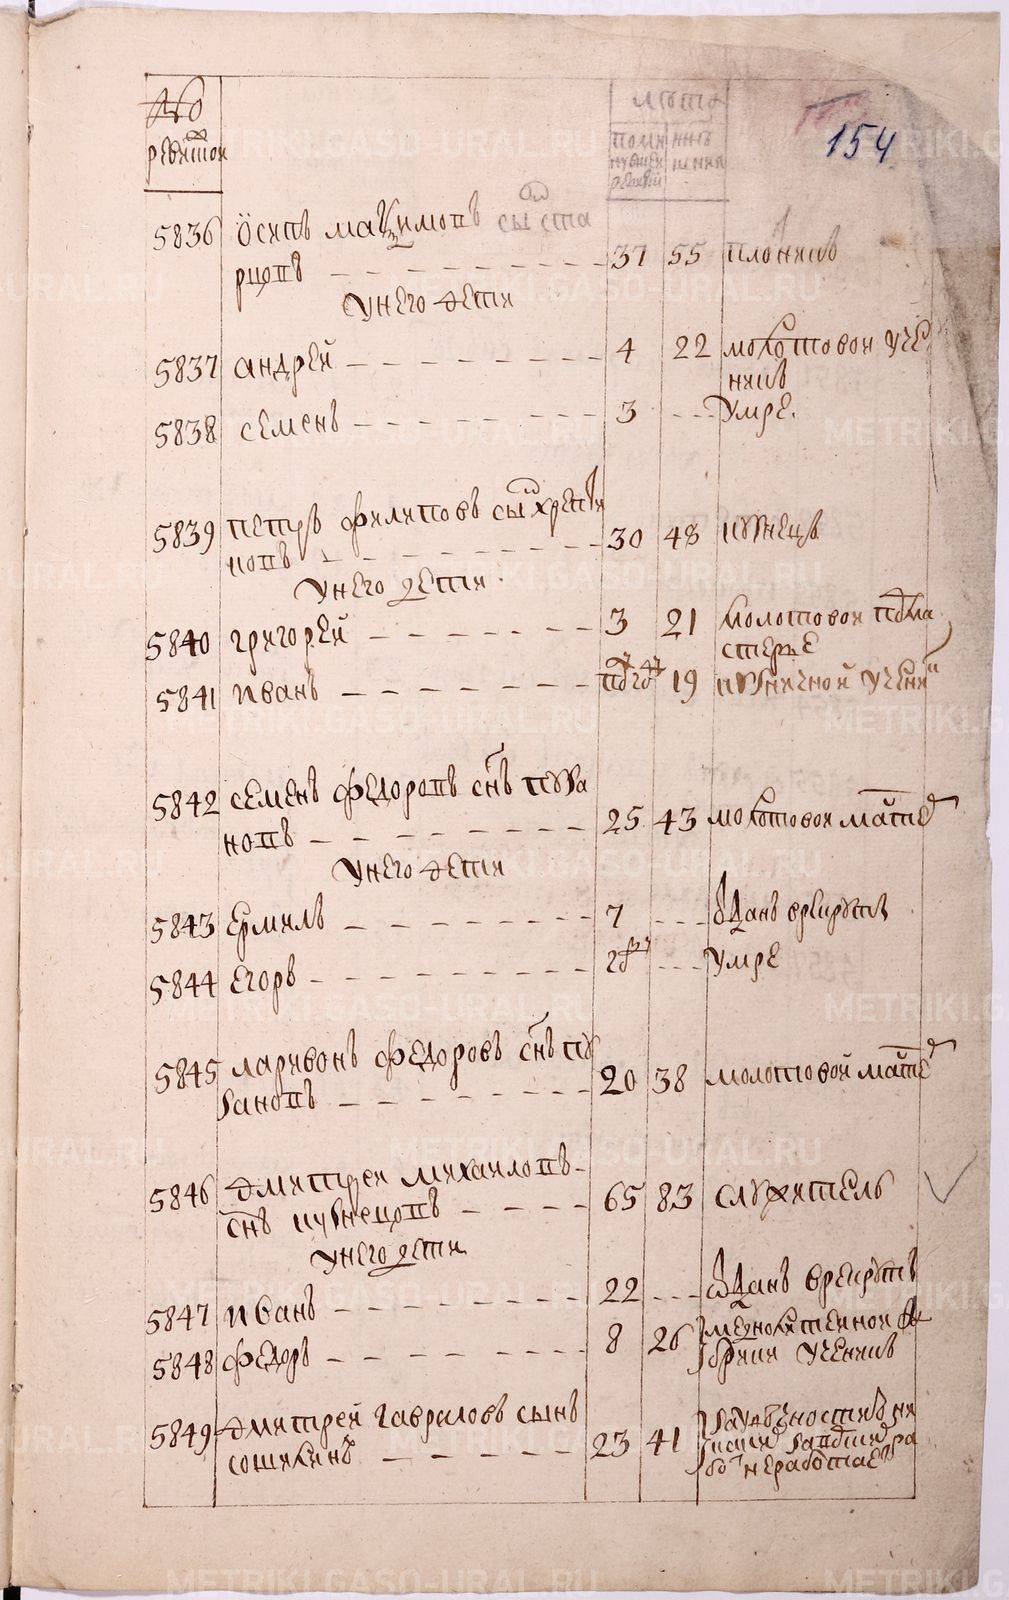 154
лѣта
ревиской
5836 Осипъ Максимовъ сынъ Ста
рцовъ 37 55 плотникъ
У него дети
5837 Андрей 4 22 молотовой уче
никъ
5838 Семенъ 3 Умре.
5839 Петръ Филиповъ сынъ
новъ 30 48 кузнецъ
У него дети
5840 Григорей 3 21 молотовой подма
стерье
5841 Иванъ 19 кузничной ученик
5842 Семенъ Федоровъ снъ Пуза
новъ 25 43 молотовой мастер
У него дети
5843 Ермилъ 7 отданъ в рекруты
5844 Егоръ Умре
5845 Ларивонъ Федоровъ снъ Пу
зановъ 20 38 молотовой мастер
5846 Дмитрей Михаиловъ
снъ Кузнецовъ 65 83 служитель
У него дети
5847 Иванъ 22 отданъ в рекруты
5848 Федоръ 8 26 ученикъ
5849 Дмитрей Гавриловъ сынъ
23 41
не работает
METRIKI.GASO-URAL.RU